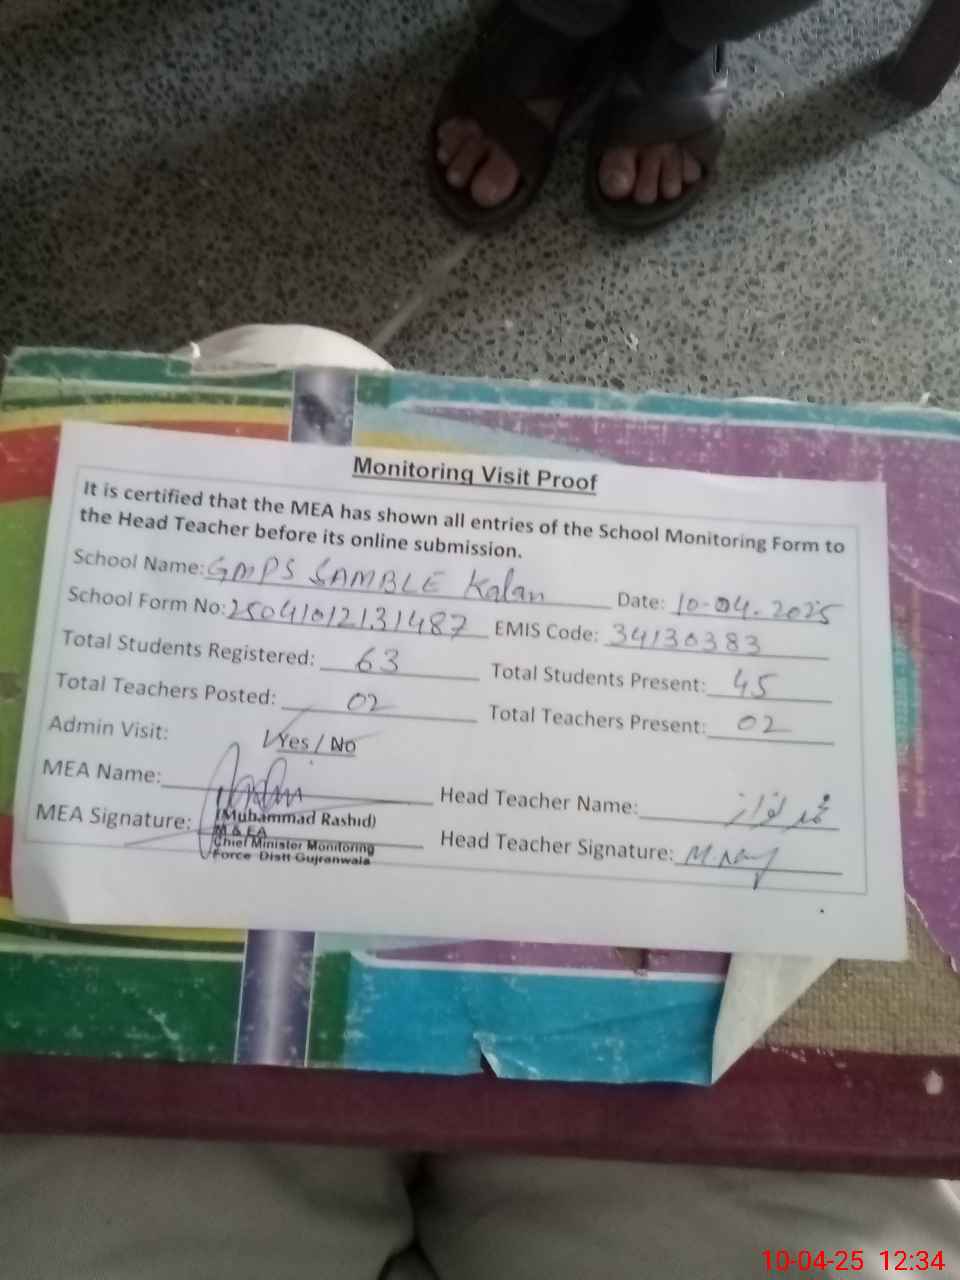 Monitoring Visit Proof
It is certified that the MEA has shown all entries of the School Monitoring Form to
the Head Teacher before its online submission.
School Name: GMPS SAMBLE Kalan Date: 10-04-2025
School Form No: 25041012131487 EMIS Code: 34130383
Total Students Registered: 63 Total Students Present: 45
Total Teachers Posted: 02 Total Teachers Present: 02
Admin Visit: Yes / No
MEA Name: Head Teacher Name: محمد نواز
MEA Signature: Head Teacher Signature:
(Muhammad Rashid)
M & EA
Chief Minister Monitoring
Force Distt Gujranwala
10-04-25 12:34